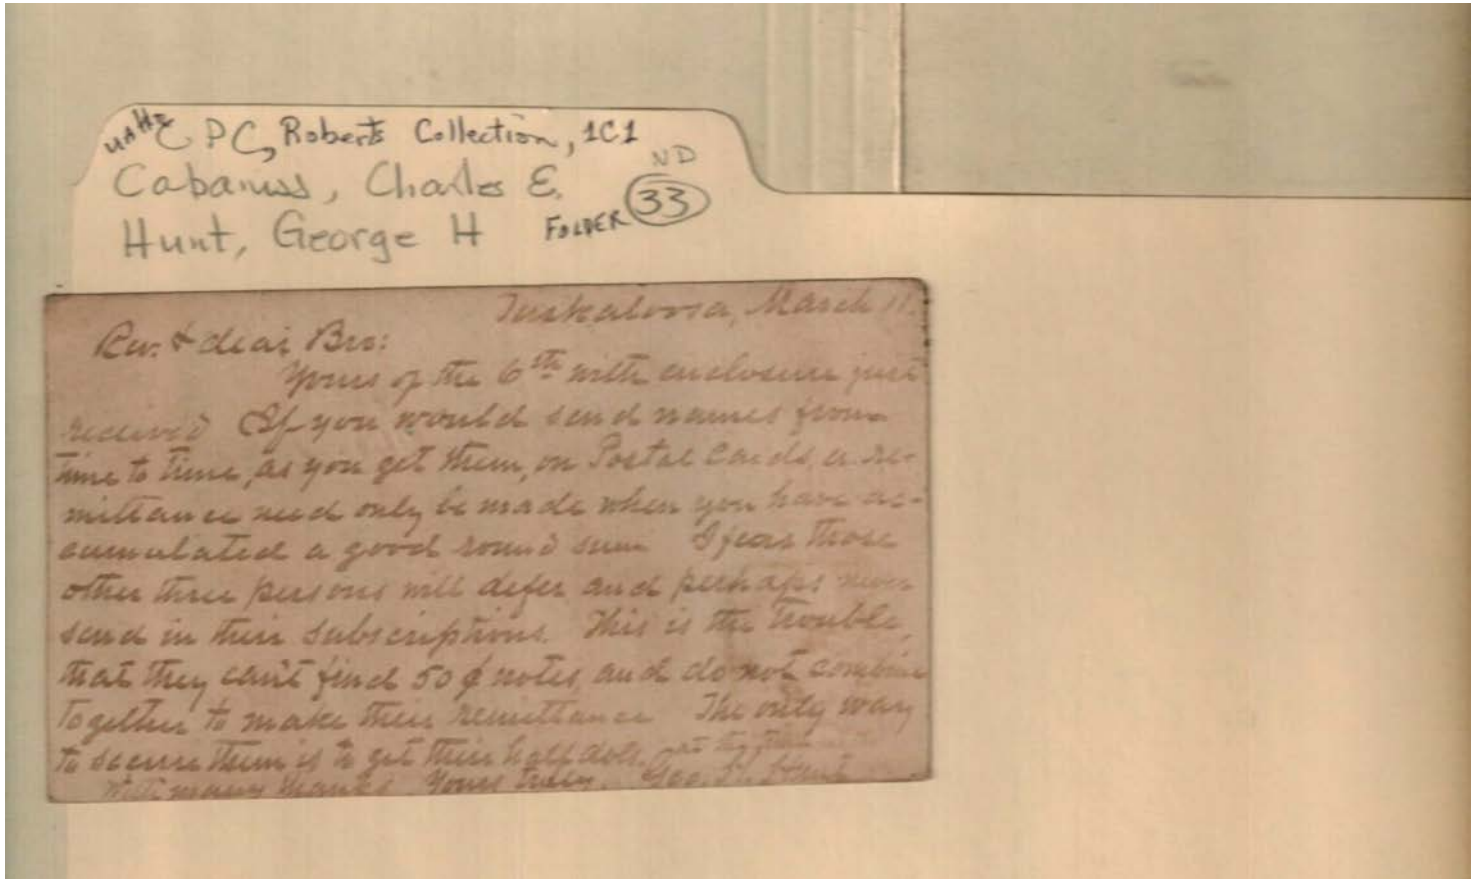 UAHC PC, Roberts Collection, 1C1
ND
Cabaniss, Charles E.
Hunt, George H
FOLDER 33
Tuskaloosa, March 11.
Rev. & dear Bro:
Yours of the 6th with enclosure just
received If you would send names from
time to time, as you get them, on Postal Cards, a re-
mittance need only be made when you have ac-
cumulated a good round sum I fear those
other three persons will defer and perhaps never
send in their subscriptions. This is the trouble,
that they can't find 50 ¢ notes, and do not combine
together to make their remittance The only way
to secure them is to get their half dols. at the
With many thanks Yours truly, Geo. H. Hunt